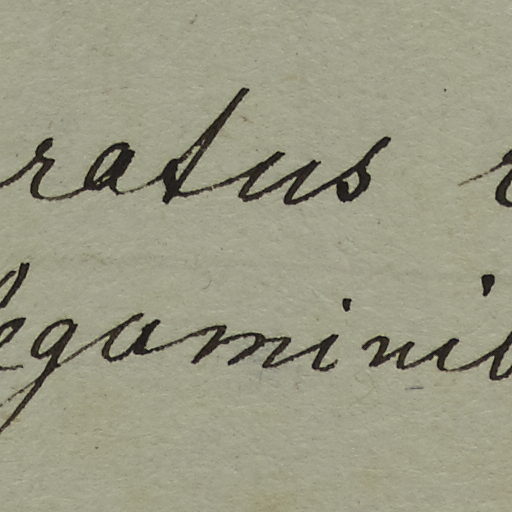 ratus
egaminib